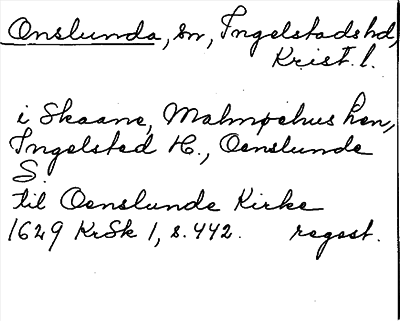 Onslunda, sn, Ingelstads hd,
Krist. l.
i Skaane, Malmøehus Len,
Ingelsted H., Oenslunde
S.
til Oenslunde Kirke
1629 KrSk 1, s. 442. regest.